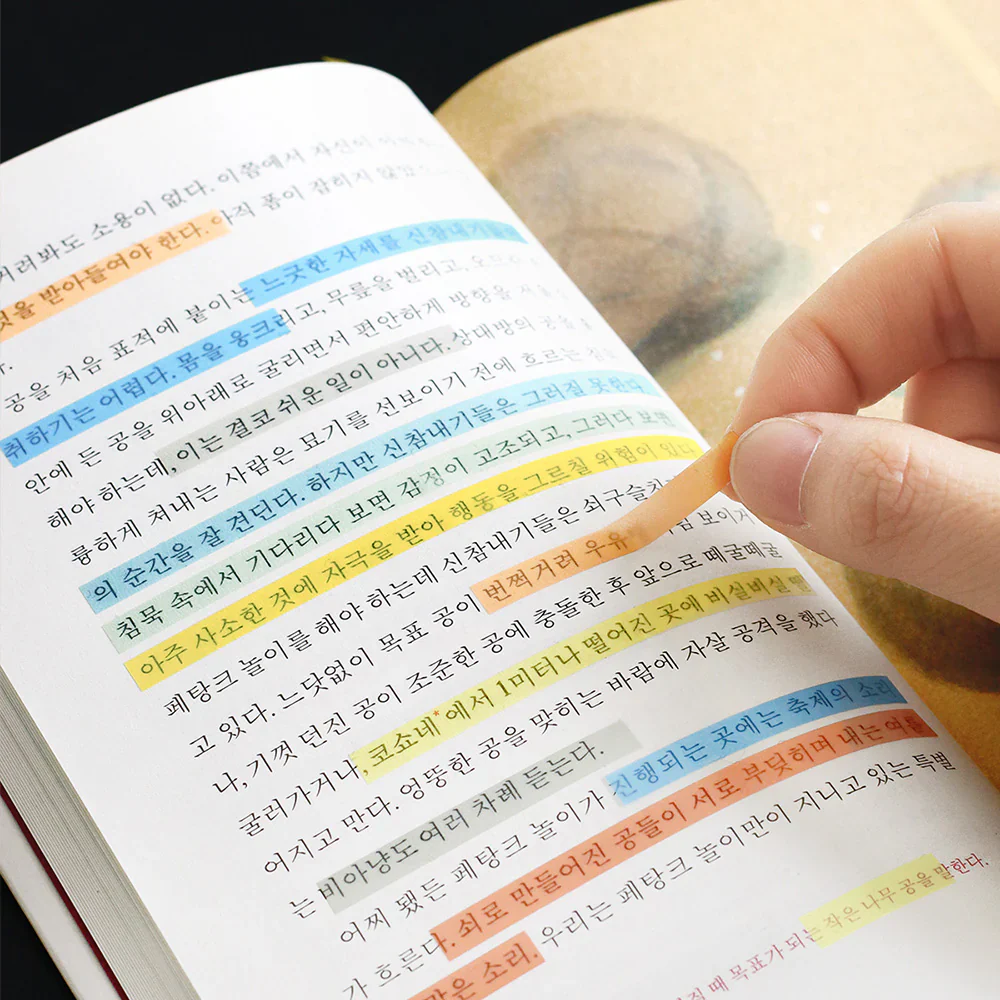 거려봐도 소용이 없다. 이쯤에서 자신이
것을 받아들여야 한다. 아직 폼이 잡히지 않았
공을 처음 표적에 붙이는 느긋한 자세를 신참내기들은
취하기는 어렵다. 몸을 웅크리고, 무릎을 벌리고,
안에 든 공을 위아래로 굴리면서 편안하게 방향을
해야 하는데, 이는 결코 쉬운 일이 아니다. 상대방의 공을
륭하게 쳐내는 사람은 묘기를 선보이기 전에 흐르는
의 순간을 잘 견딘다. 하지만 신참내기들은 그러질 못한다.
침묵 속에서 기다리다 보면 감정이 고조되고, 그러다 보면
아주 사소한 것에 자극을 받아 행동을 그르칠 위험이 있다
페탕크 놀이를 해야 하는데 신참내기들은 쇠구슬치
고 있다. 느닷없이 목표 공이 번쩍거려 우유 보이거
나, 기껏 던진 공이 조준한 공에 충돌한 후 앞으로 떼굴떼굴
굴러가거나, 코쇼네*에서 1미터나 떨어진 곳에 비실비실
어지고 만다. 엉뚱한 공을 맞히는 바람에 자살 공격을 했다
는 비아냥도 여러 차례 듣는다.
어찌 됐든 페탕크 놀이가 진행되는 곳에는 축제의 소리
가 흐른다. 쇠로 만들어진 공들이 서로 부딪히며 내는 여름
맑은 소리. 우리는 페탕크 놀이만이 지니고 있는 특별
질 때 목표가 되는 작은 나무 공을 말한다.